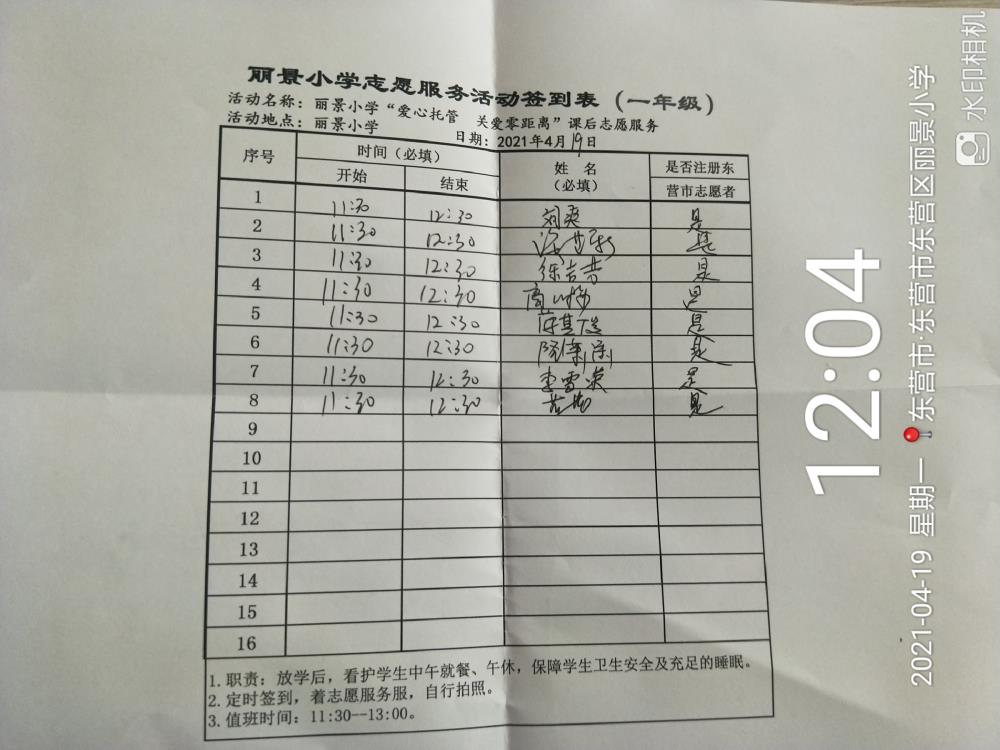 丽景小学志愿服务活动签到表（一年级）
活动名称：丽景小学“爱心托管 关爱零距离”课后志愿服务
活动地点：丽景小学 日期：2021年4月19日
序号 时间（必填） 姓名（必填） 是否注册东营市志愿者
开始 结束
1 11:30 12:30 刘爽 是
2 11:30 12:30 是
3 11:30 12:30 徐吉芳 是
4 11:30 12:30 是
5 11:30 12:30 是
6 11:30 12:30 是
7 11:30 12:30 李雪 是
8 11:30 12:30 是
9
10
11
12
13
14
15
16
1. 职责：放学后，看护学生中午就餐、午休，保障学生卫生安全及充足的睡眠。
2. 定时签到，着志愿服务服，自行拍照。
3. 值班时间：11:30--13:00。
12:04
2021-04-19 星期一 东营市·东营市东营区丽景小学
水印相机